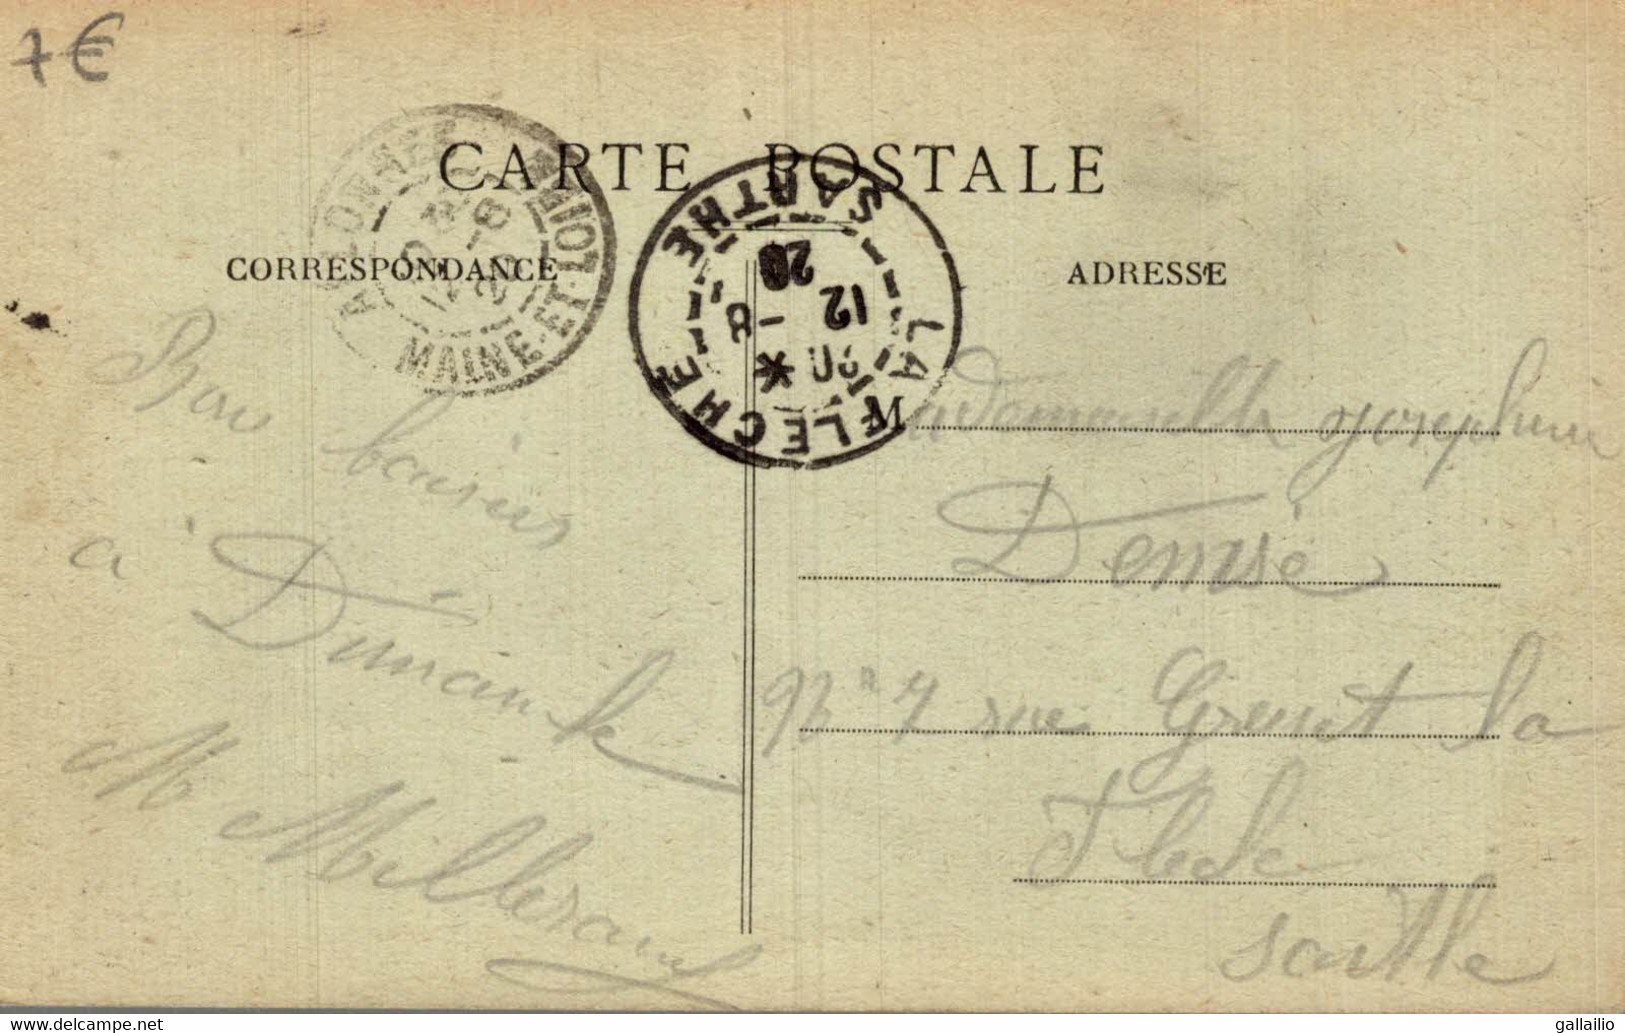 7€
CARTE POSTALE
CORRESPONDANCE
ADRESSE
MAINE-ET-LOIRE
LA FLECHE
SARTHE
8 - 12
20
Bon baiser
à Dimanche
M Millerand
Mademoiselle Josephine
Denise
7 rue la
Fleche
Sarthe
www.delcampe.net
gallailio